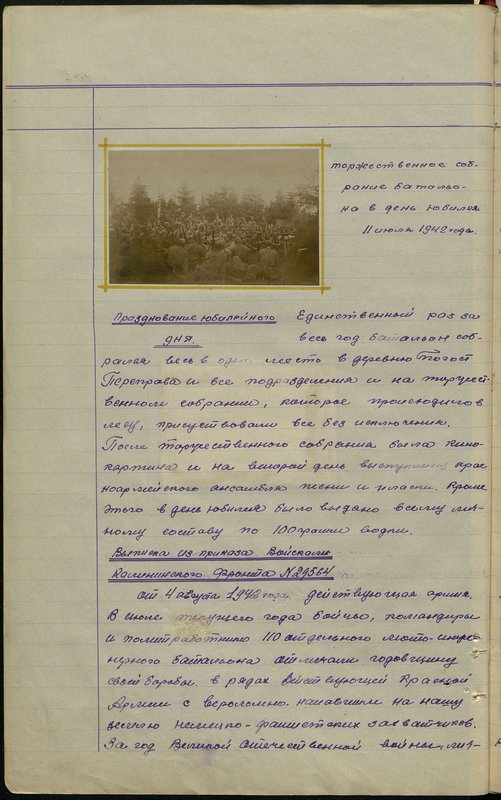 торжественное соб-
рание батальо-
на в день юбилея
11 июля 1942 года.
Празднование юбилейного
дня.
Единственный раз за
весь год батальон соб-
рался весь в одно место в деревню Погост
Переправа и все подразделения и на торжест-
венном собрании, которое происходило в
лесу, присутствовали все без исключения.
После торжественного собрания была кино-
картина и на второй день выступление крас-
ноармейского ансамбля песни и пляски. Кроме
этого в день юбилея было выдано всему лич-
ному составу по 100 грамм водки.
Выписка из приказа Войскам
Калининского Фронта N 29564
от 4 августа 1942 года. действующая армия.
В июле текущего года бойцы, командиры
и политработники 110 отдельного мото-инже-
нерного батальона отмечали годовщину
своей борьбы в рядах действующей Красной
Армии с вероломно напавшими на нашу
землю немецко-фашистских захватчиков.
За год Великой отечественной войны, лич-